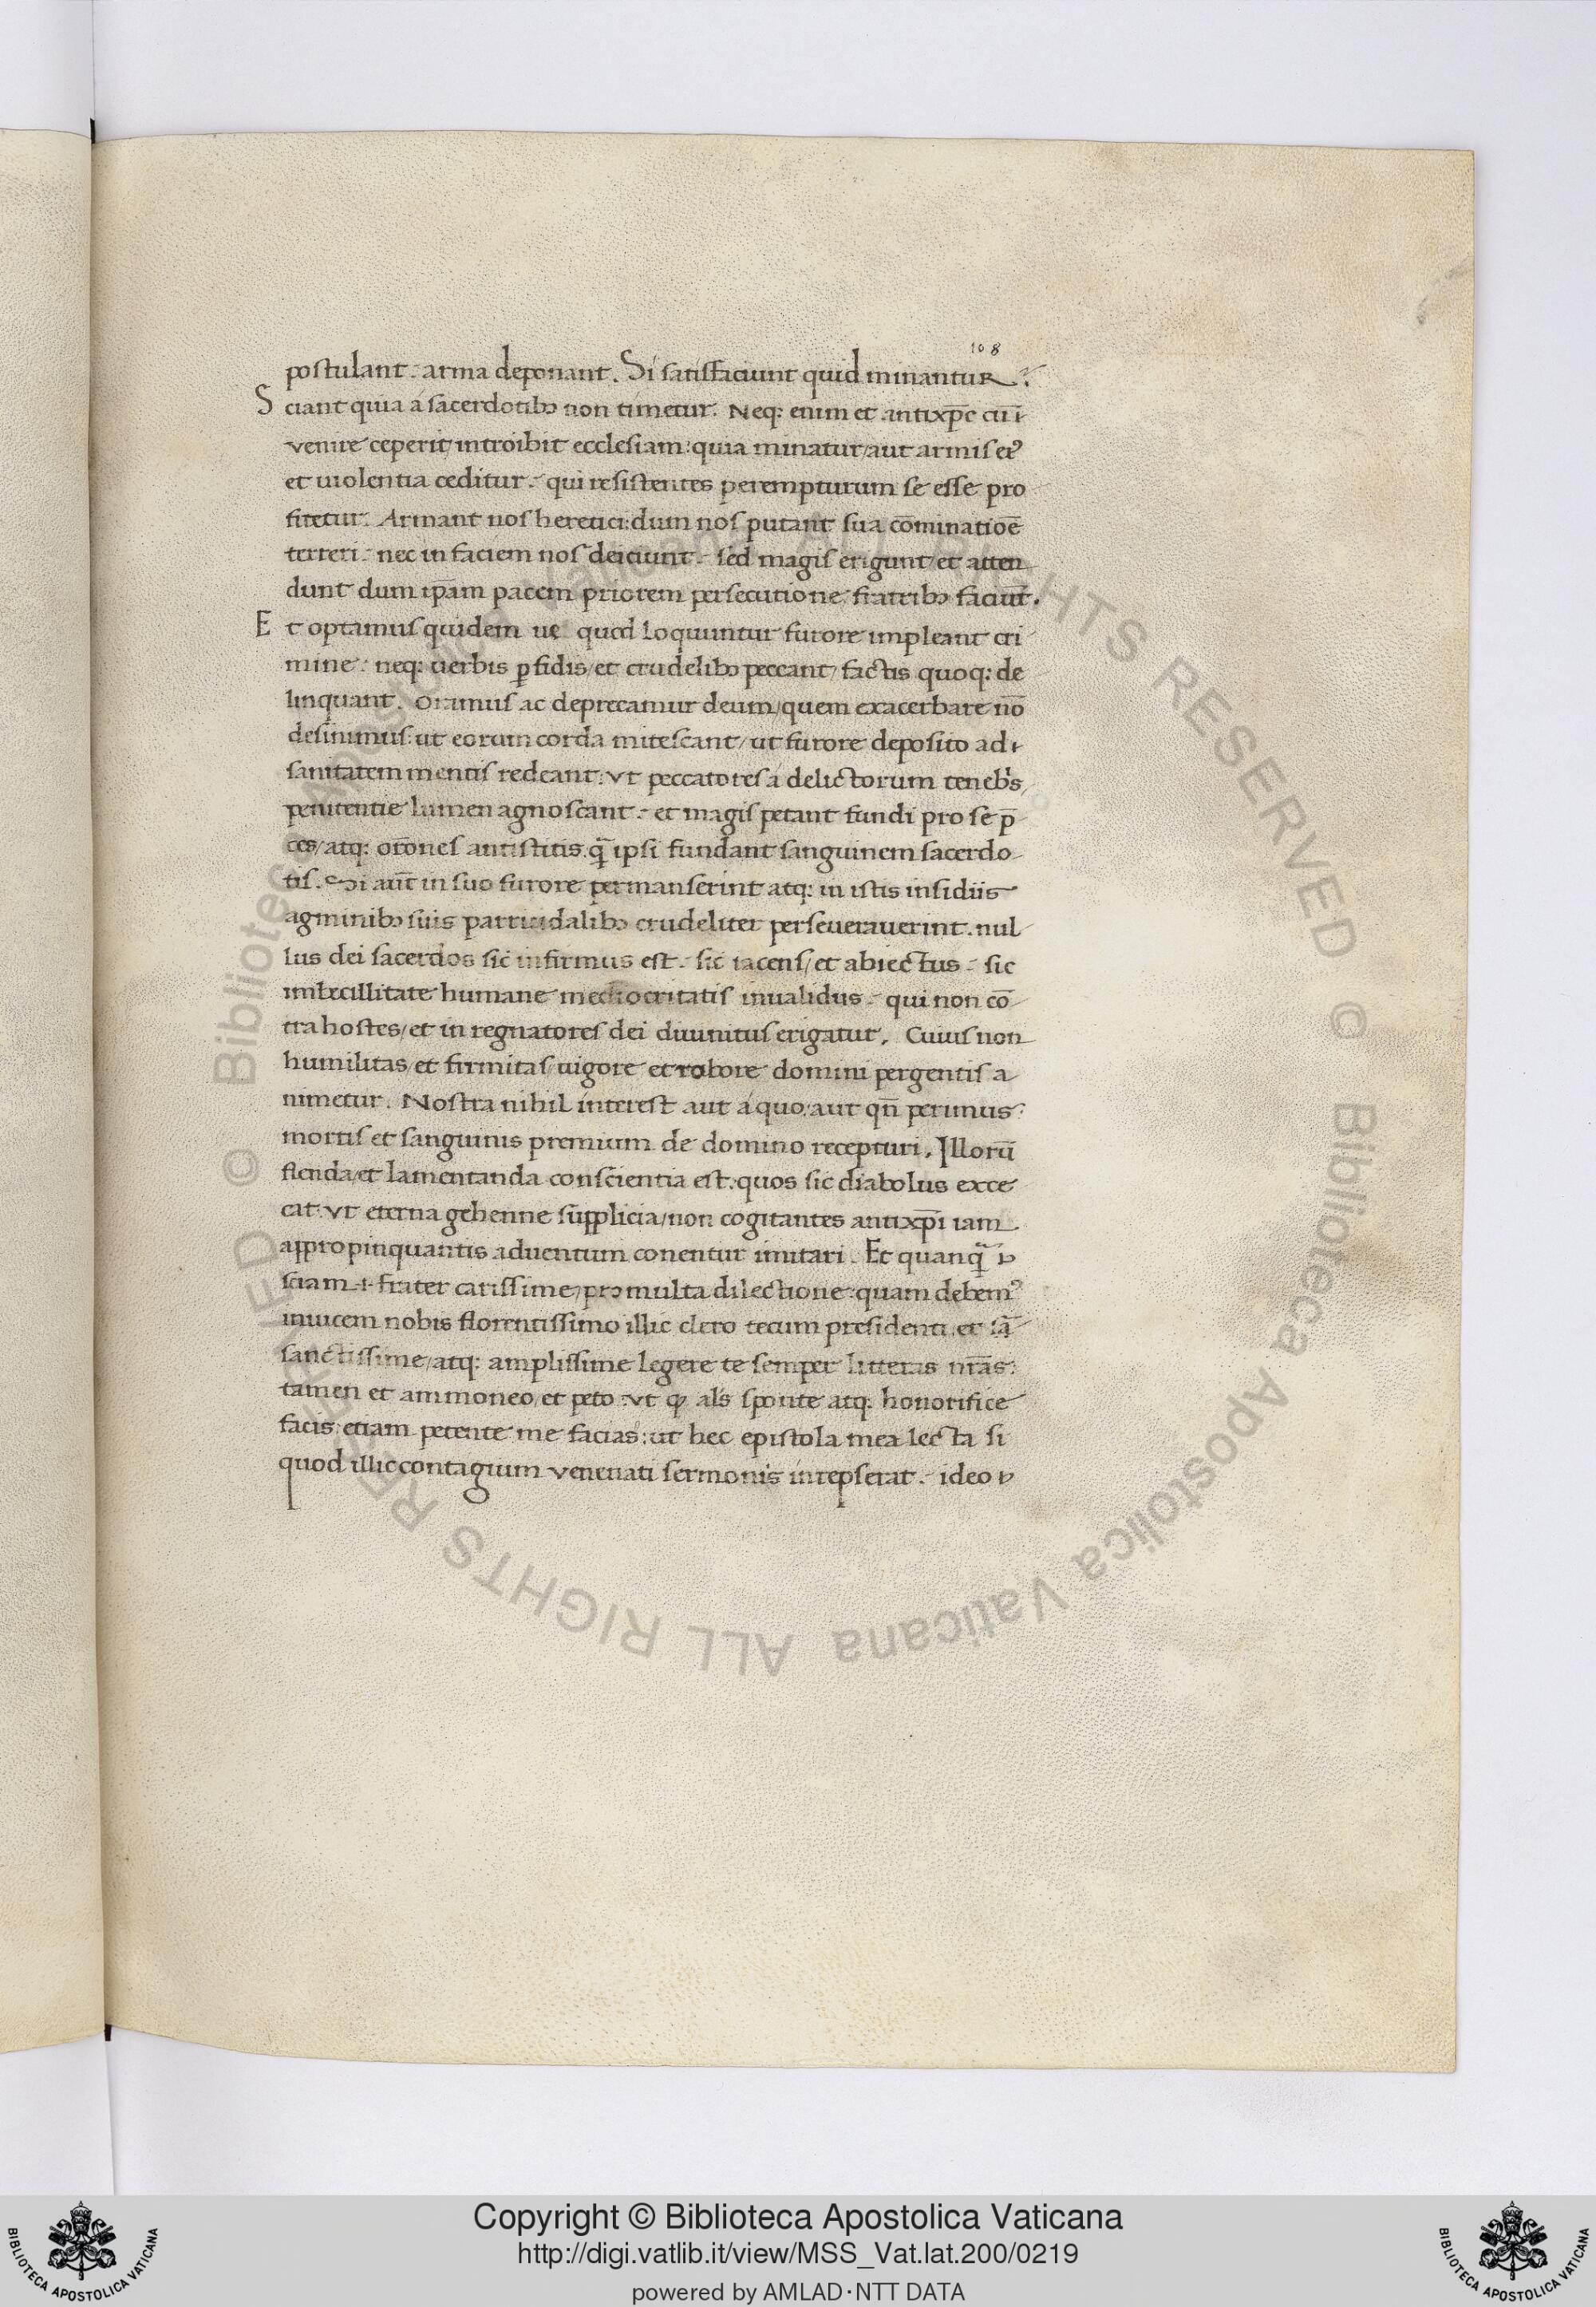 108
postulant. arma deponant. Si satisfaciunt quid minantur?
Sciant quia a sacerdotibꝫ non timetur. Neqꝫ enim et antixp̄c cū
venire ceperit, introibit ecclesiam: quia minatur, aut armis eꝰ
et uiolentia ceditur. qui resistentes perempturum se esse pro
fitetur. Armant nos heretici: dum nos putant sua cōminatioē
terreri. nec in faciem nos deiciunt. sed magis erigunt, et atten
dunt dum ip̄am pacem priorem persecutione fratribꝫ faciūt.
Et optamus quidem ue quod loquuntur furore impleant cri
mine. neqꝫ uerbis ꝑfidis, et crudelibꝫ peccant, factis quoqꝫ de
linquant. Oramus ac deprecamur deum, quem exacerbare nō
desinimus: ut eorum corda mitescant, ut furore deposito ad
sanitatem mentis redeant: vt peccatores a delictorum teneb's
penitentie lumen agnoscant. et magis petant fundi pro se p̄
ces, atqꝫ orōnes antistitis. q̄ ipsi fundant sanguinem sacerdo
tis. Si aūt in suo furore permanserint atqꝫ in istis insidiis
agminibꝫ suis parricidalibꝫ crudeliter perseuerauerint. nul
lus dei sacerdos sic infirmus est. sic iacens, et abiectus. sic
imbecillitate humane mediocritatis inualidus. qui non cō
tra hostes, et in regnatores dei diuinitus erigatur. Cuius non
humilitas, et firmitas, uigore et robore domini pergentis a
nimetur. Nostra nihil interest aut a quo, aut qn̄ perimus:
mortis et sanguinis premium de domino recepturi. Illorū
flenda, et lamentanda conscientia est. quos sic diabolus exce
cat. vt eterna gehenne supplicia, non cogitantes antixp̄i iam
appropinquantis aduentum conentur imitari. Et quanq̄
sciam frater carissime, pro multa dilectione: quam debemꝰ
inuicem nobis florentissimo illic clero tecum presidenti, et
sanctissime, atqꝫ amplissime legere te semper litteras nr̄as:
tamen et ammoneo, et peto: vt ꝙ als sponte atqꝫ honorifice
facis: etiam petente me facias: ut hec epistola mea lecta si
quod illic contagium venenati sermonis inrepserat. ideo
Copyright © Biblioteca Apostolica Vaticana
http://digi.vatlib.it/view/MSS_Vat.lat.200/0219
powered by AMLAD·NTT DATA